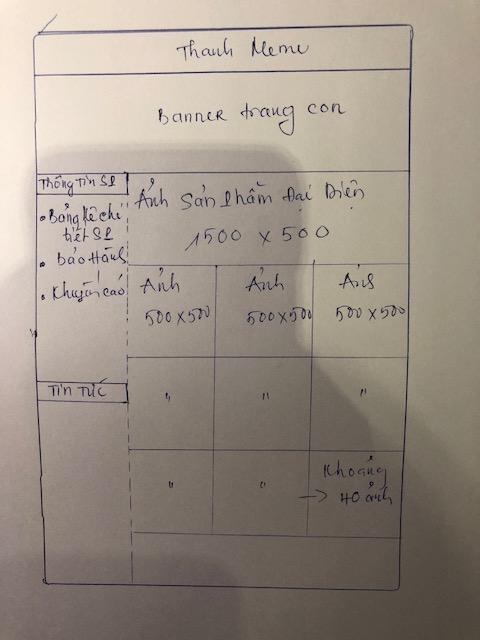 Thanh Menu
Banner trang con
Thông Tin SP
• Bảng kê chi
tiết SP
• Bảo Hành
• Khuyến cáo
Ảnh Sản Phẩm Đại Diện
1500 x 500
Ảnh
500x500
Ảnh
500x500
Ảnh
500x500
Tin Tức
"
"
"
"
"
Khoảng
→ 40 ảnh